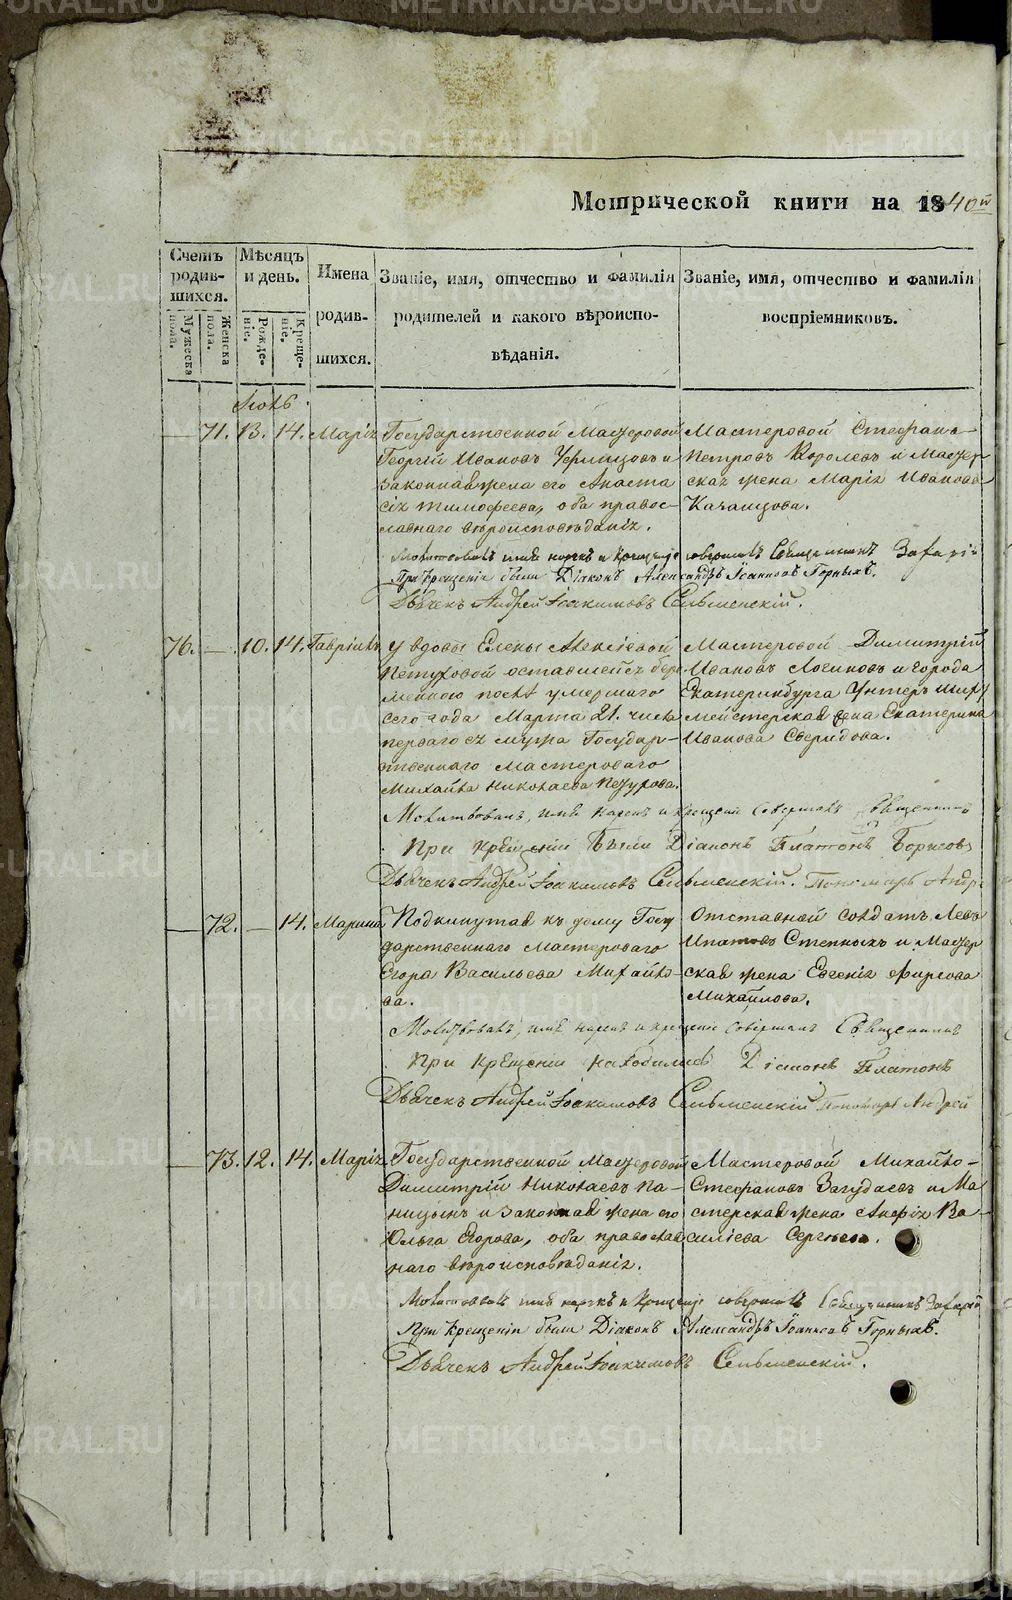 Метрической книги на 1840й
Счетъ родившихся.
Мужеска пола.
Женска пола.
Мѣсяцъ и день.
Рожденіе.
Крещеніе.
Имена родившихся.
Званіе, имя, отчество и фамилія
родителей и какого вѣроиспо-
вѣданія.
Званіе, имя, отчество и фамилія
воспріемниковъ.
71. 13. 14. Марія
Государственной Мастеровой
Георгій Ивановъ и
законная жена его Анаста
сія Тимофеева, оба правос-
лавнаго вѣроисповѣданія.
Мастеровой Стефанъ
Петровъ Королевъ и Мастер
ская жена Марія Иванова
Молитвовалъ имя нарекъ и крещеніе совершалъ Священникъ Захарій
При крещеніи были Діаконъ Александръ Іоанновъ Горныхъ.
Дьячекъ Андрей Іоакимовъ Сельменскій.
76. — 10. 14. Гавріилъ
У вдовы Елены Алексіевой
Петуховой оставшейся бере
менною послѣ умершаго
сего года Марта 21. числа
перваго ея мужа Государ-
ственнаго Мастероваго
Михайла Николаева Петухова.
Мастеровой Димитрій
Ивановъ Логиновъ и города
Екатеринбурга Унтеръ Шихт
мейстерская жена Екатерина
Иванова Свиридова.
Молитвовалъ, имя нарекъ и крещеніе совершалъ Священникъ
При крещеніи были Діаконъ Платонъ Борисовъ
Дьячекъ Андрей Іоакимовъ Сельменскій. Пономарь Андр
— 72. — 14. Марина
Подкинутая къ дому Госу
дарственнаго Мастероваго
Егора Васильева Михайло-
ва.
Отставной солдатъ Левъ
Ипатовъ Степныхъ и Мастер
ская жена Евгенія Фирсова
Михайлова.
Молитвовалъ, имя нарекъ и крещеніе совершалъ Священникъ
При крещеніи находились Діаконъ Платонъ
Дьячекъ Андрей Іоакимовъ Сельменскій Пономарь Андрей
— 73. 12. 14. Марія
Государственной Мастеровой
Димитрій Николаевъ Па-
ницынъ и законная жена его
Ольга Егорова, оба православ
наго вѣроисповѣданія.
Мастеровой Михайло
Стефановъ Загудаевъ и Ма
стерская жена Анфія Ва-
силіева Сергѣева.
Молитвовалъ имя нарекъ и крещеніе совершалъ Священникъ Захарій
При крещеніи были Діаконъ Александръ Іоанновъ Горныхъ.
Дьячекъ Андрей Іоакимовъ Сельменскій.
METRIKI.GASO-URAL.RU